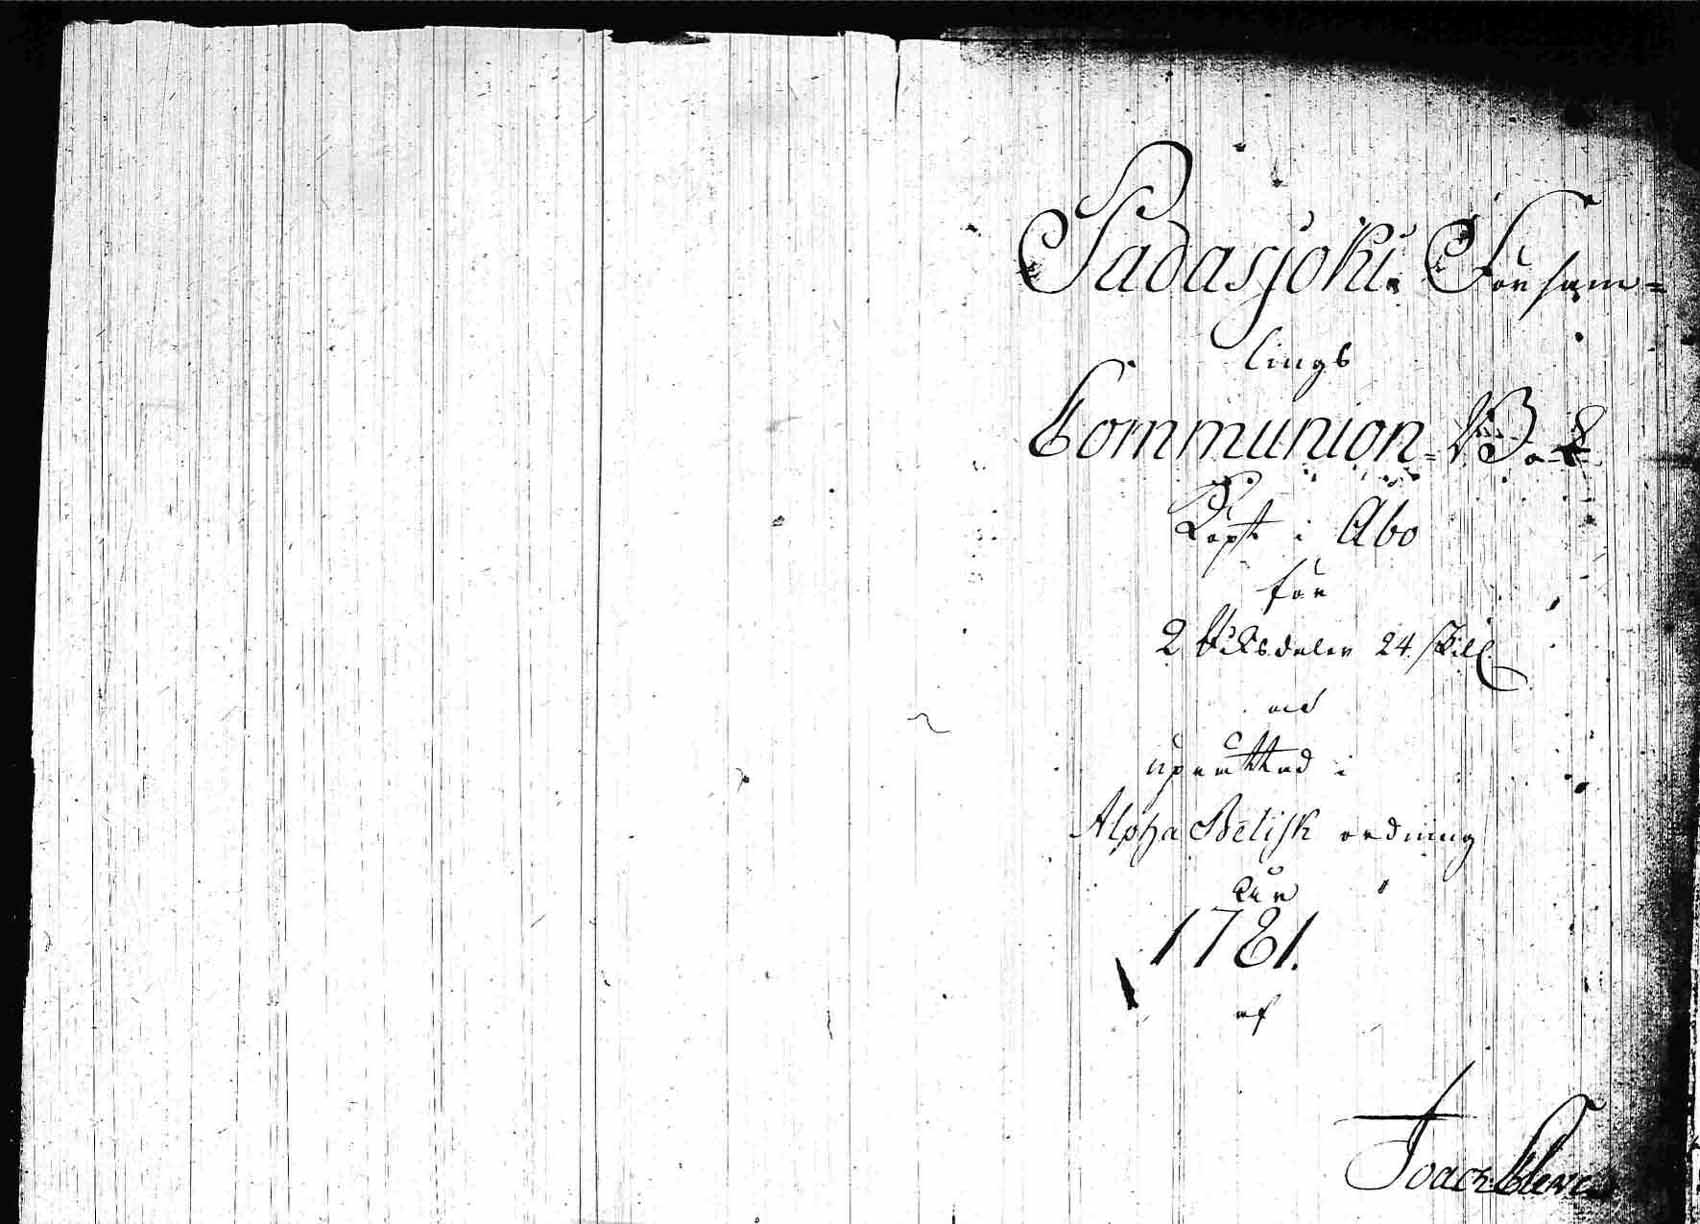 Padasjoki Försam=
lings
Communion-Bok
Köpt i Åbo
för
2 Riksdaler 24. skill.
och
uprättad i
AlphaBetisk ordning
åhr
1781.
af
Joach